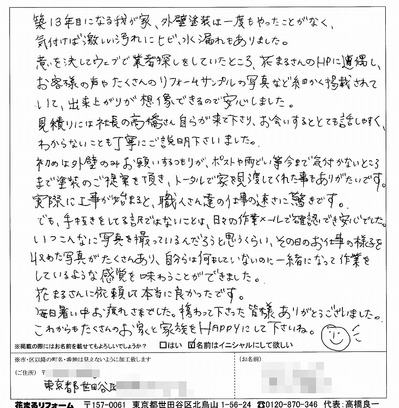 築13年目になる我が家、外壁塗装は一度もやったことがなく、
気付けば激しい汚れにヒビ、水漏れもありました。
意を決してウェブで業者探しをしていたところ、花まるさんのHPに遭遇し、
お客様の声やたくさんのリフォームサンプルの写真など細かく掲載されて
いて、出来上がりが想像できるので安心しました。
見積りには社長の高橋さん自らが来て下さり、お会いするととても話しやすく、
わからないことも丁寧にご説明下さいました。
初めは外壁のみお願いするつもりが、ポストや雨どい等今まで気付かないところ
まで塗装のご提案を頂き、トータルで家を見渡してくれた事もありがたいです。
実際に工事が始まると、職人さん達の仕事の速さに驚きです。
でも、手抜きをしてる訳ではないことは、日々の作業メールで確認でき安心でした。
いつこんなに写真を撮っているんだろうと思うくらい、その日のお仕事の様子を
収めた写真がたくさんあり、自分らは何もしていないのに一緒になって作業を
しているような感覚を味わうことができました。
花まるさんに依頼して本当に良かったです。
毎日暑い中お疲れさまでした。携わって下さった皆様ありがとうございました。
これからもたくさんのお家と家族をHAPPYにして下さいね。
※掲載の際にはお名前を載せてもよろしいでしょうか? □はい ☑名前はイニシャルにして欲しい
※市・区以降の町名・番地は見立たないように加工致します
(ご住所) 〒
(お名前)
東京都世田谷区
花まるリフォーム 〒157-0061 東京都世田谷区北烏山1-56-24 0120-870-346 代表:高橋良一